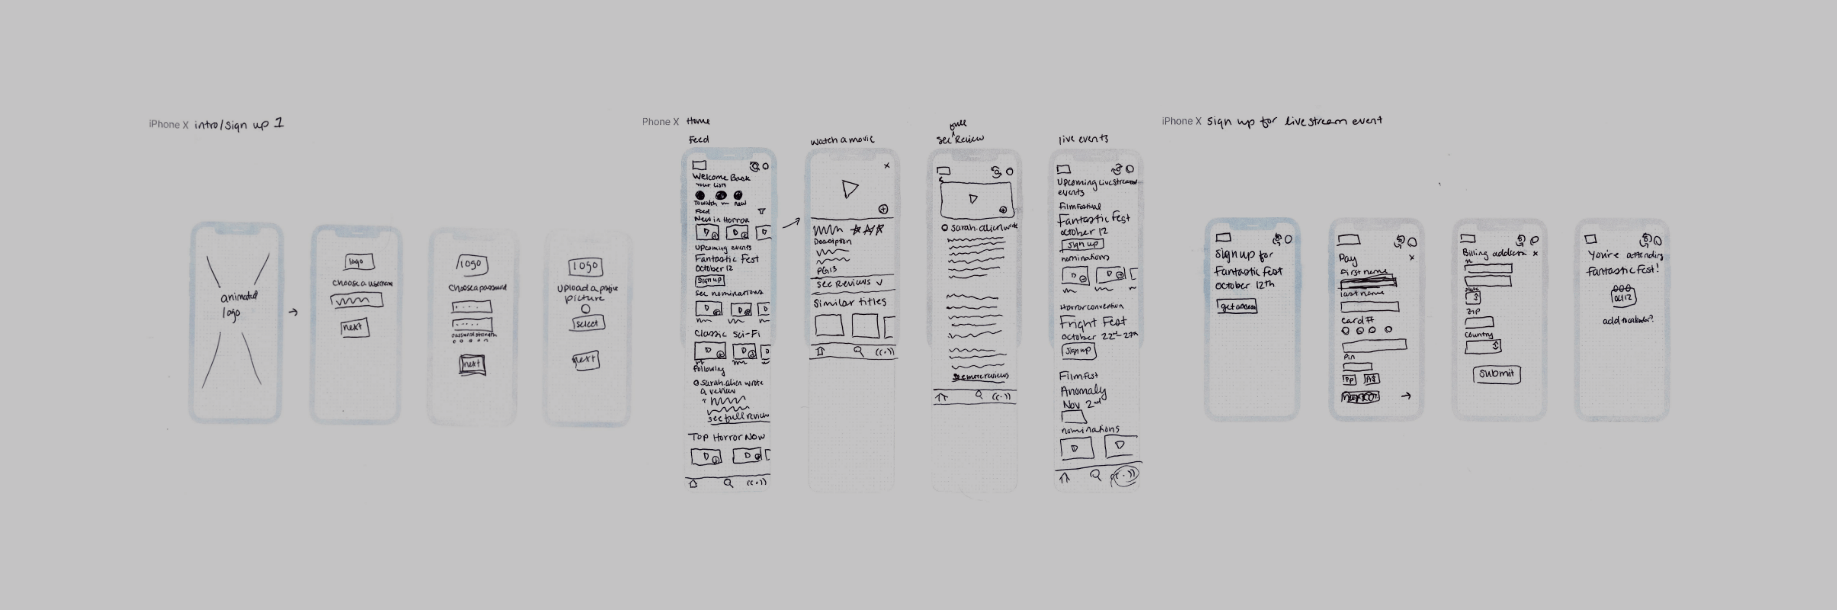 iPhone X intro/sign up 1
animated
logo
logo
choose a username
next
logo
choose a password
password strength
next
logo
upload a profile
picture
select
next
Phone X Home
Feed
Welcome Back
Your Lists
To watch
new
Feed
New in Horror
Upcoming events
Fantastic Fest
October 12
Sign up
See nominations
Classic Sci-Fi
Following
Sarah.alien wrote
a review
see full review
Top Horror Now
watch a movie
Description
PG13
See Reviews
Similar titles
full
See Review
sarah.alien wrote
See more reviews
live events
Upcoming livestream
events
Film Festival
Fantastic Fest
October 12
Sign up
nominations
Horror convention
Fright Fest
October 22nd-27th
Sign up
Film Fest
Anomaly
Nov 2nd
nominations
iPhone X Sign up for live stream event
Sign up for
Fantastic Fest
October 12th
get access
Pay
x
First name
last name
card #
Pin
Billing address x
State
Zip
Country
Submit
You're attending
Fantastic Fest!
Oct 12
add to calendar?